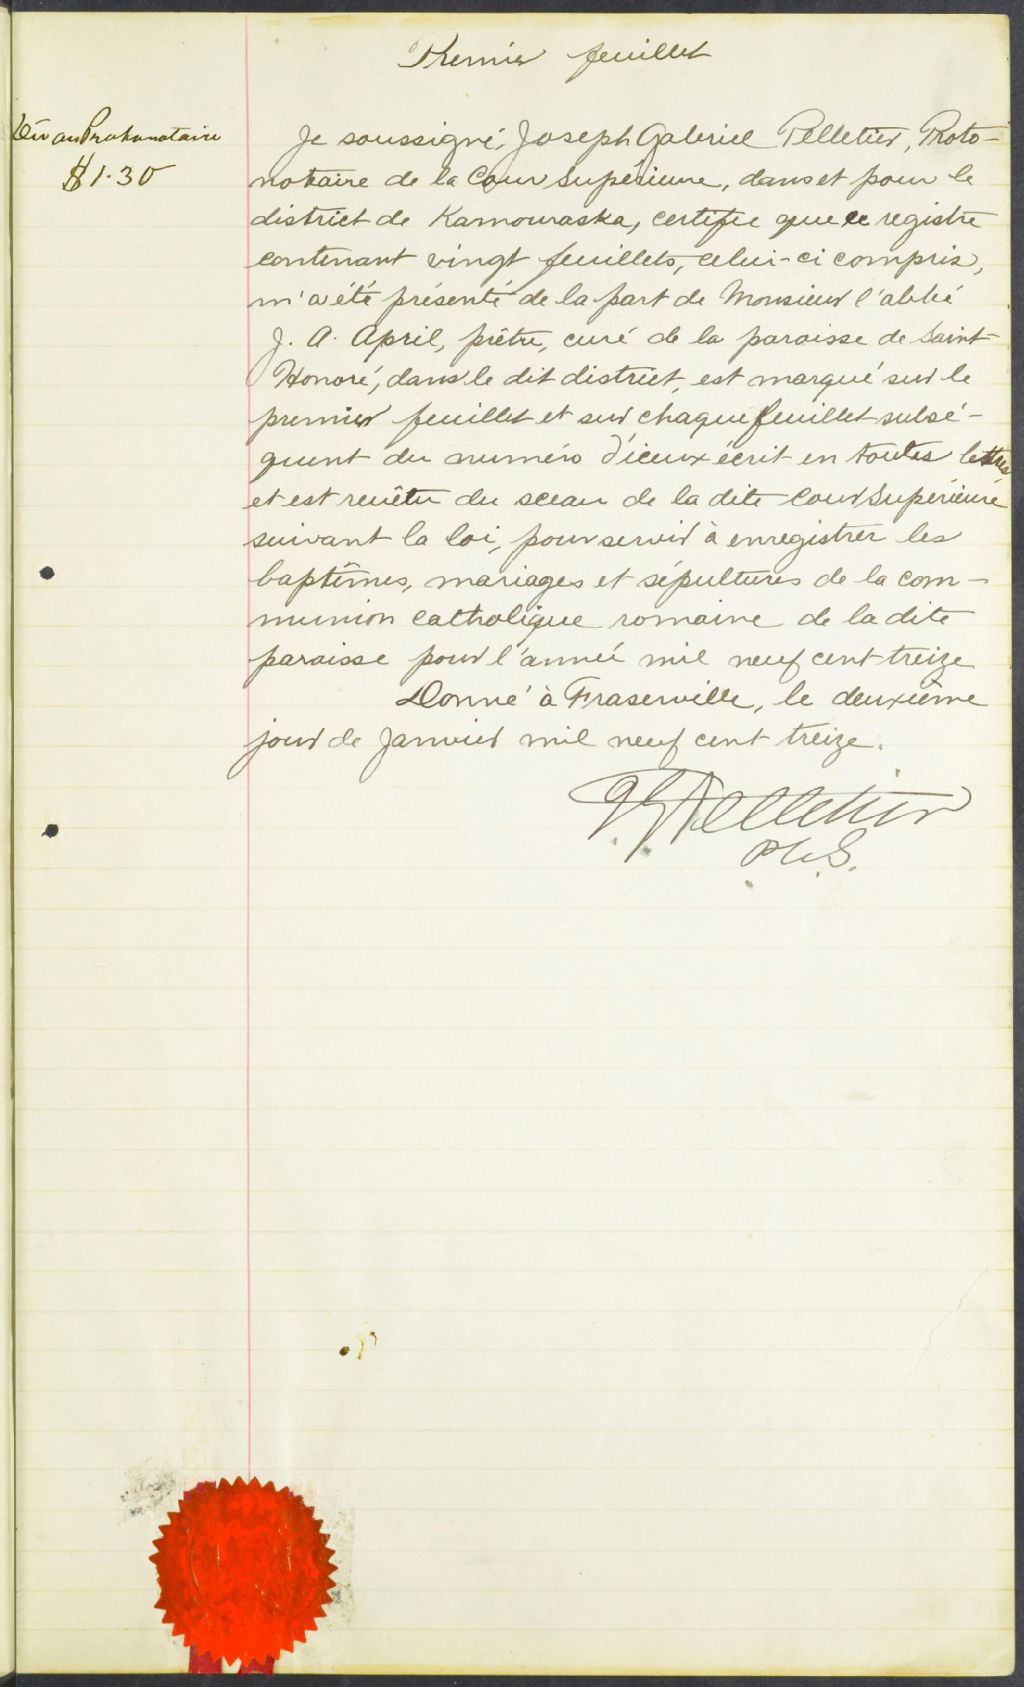 Premier feuillet
Dû au Protonotaire
$1.30
Je soussigné, Joseph Gabriel Pelletier, Proto-
notaire de la Cour Supérieure, dans et pour le
district de Kamouraska, certifie que ce registre
contenant vingt feuillets, celui-ci compris,
m'a été présenté de la part de Monsieur l'abbé
J. A. April, prêtre, curé de la paroisse de Saint-
Honoré, dans le dit district, est marqué sur le
premier feuillet et sur chaque feuillet subsé-
quent du numéro d'iceux écrit en toutes lettres
et est revêtu du sceau de la dite Cour Supérieure
suivant la loi, pour servir à enregistrer les
baptêmes, mariages et sépultures de la com-
munion catholique romaine de la dite
paroisse pour l'année mil neuf cent treize
Donné à Fraserville, le deuxième
jour de Janvier mil neuf cent treize.
J. G. Pelletier
P.C.S.